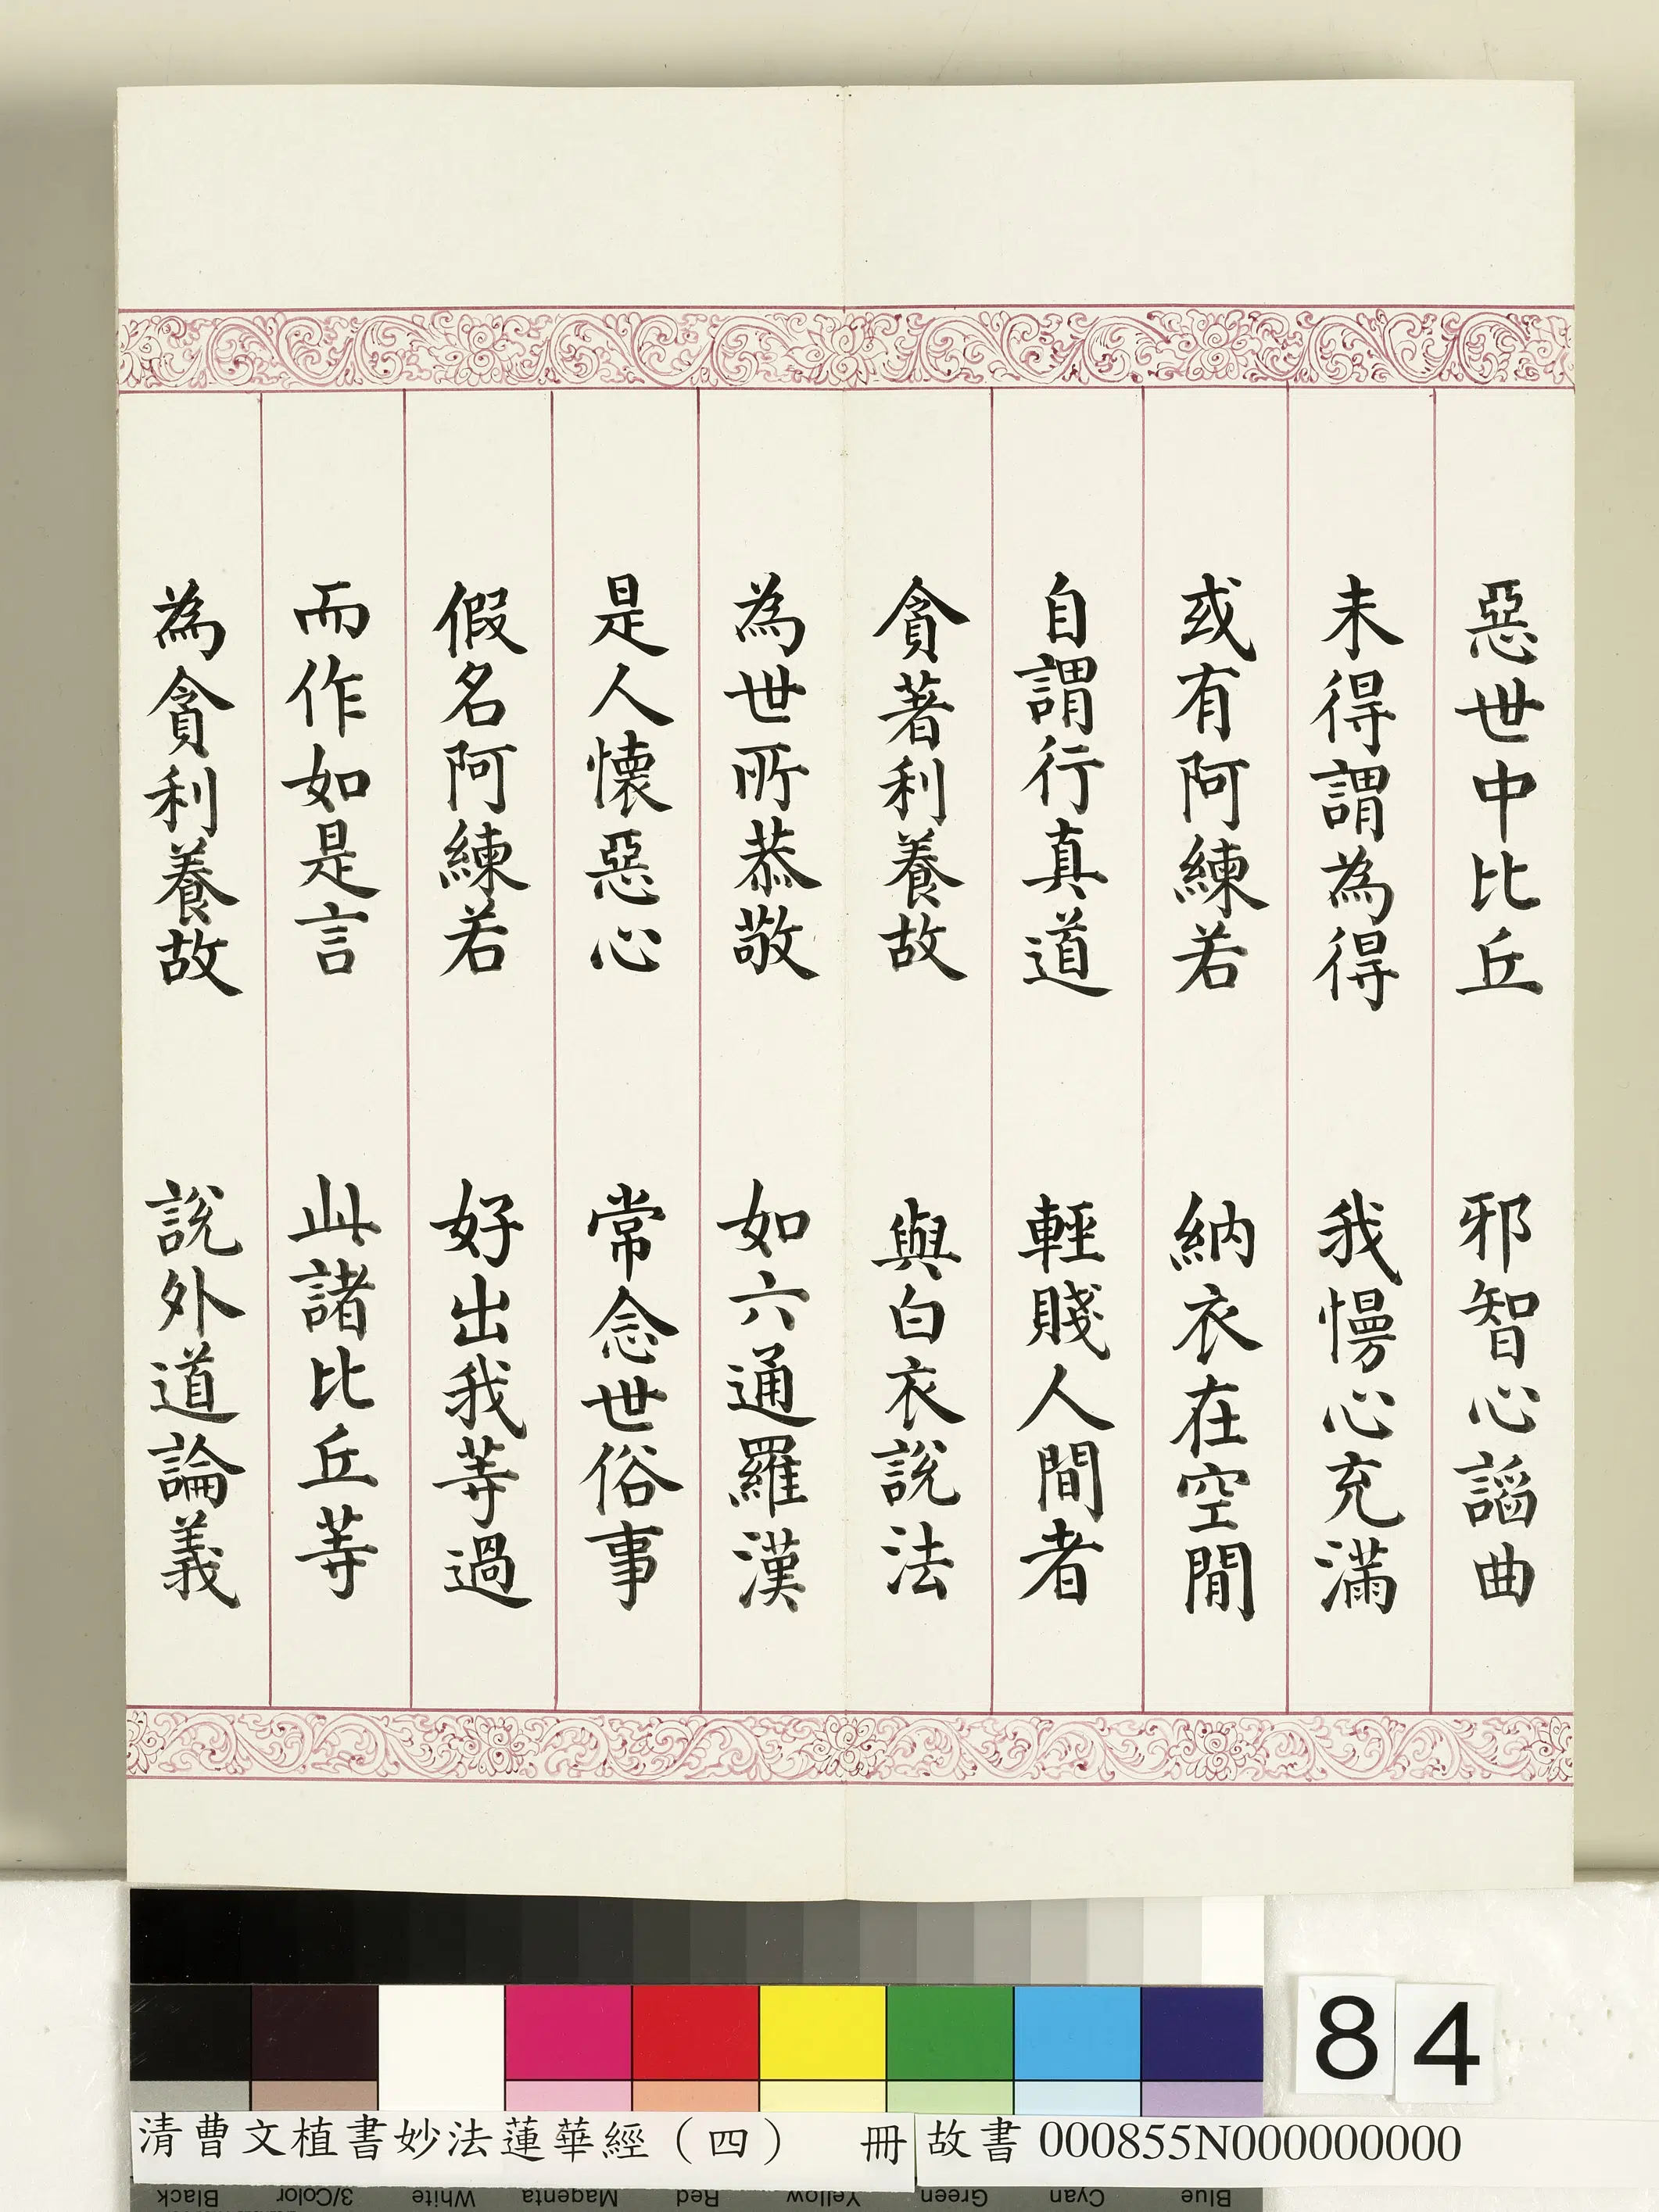 惡世中比丘 邪智心謟曲
未得謂為得 我慢心充滿
或有阿練若 納衣在空閒
自謂行真道 輕賤人間者
貪著利養故 與白衣說法
為世所恭敬 如六通羅漢
是人懷惡心 常念世俗事
假名阿練若 好出我等過
而作如是言 此諸比丘等
為貪利養故 說外道論義
84
清曹文植書妙法蓮華經（四） 冊
故書 000855N000000000
Black 3/Color White Magenta Red Yellow Green Cyan Blue